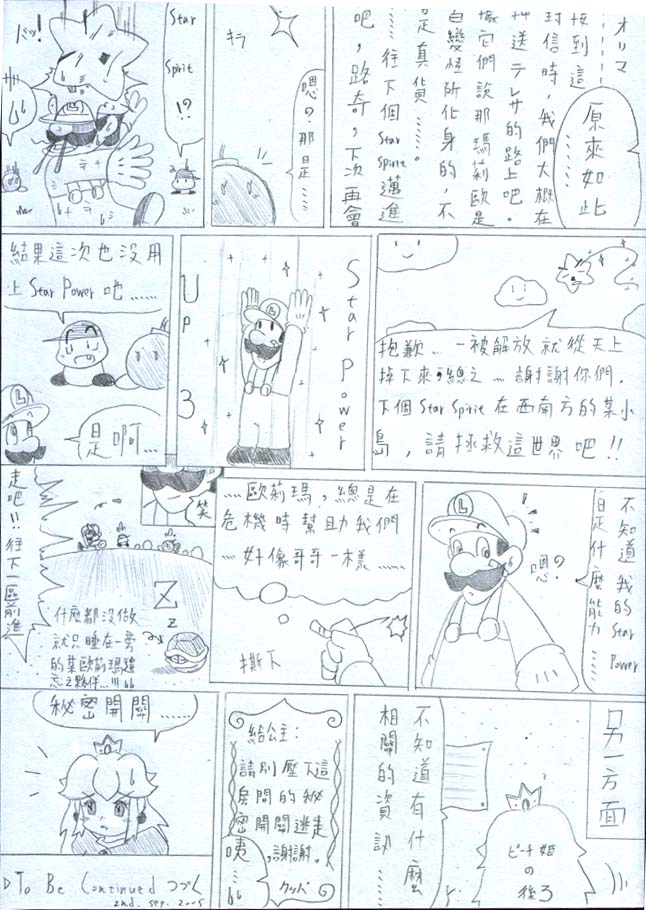 オリマ
接到這
封信時,我們大概在
押送テレサ的路上吧。
據它們說那瑪莉歐是
自變怪所化身的,不
是真貨……。
……往下個Star Spirit邁進
吧,路奇,下次再會
原來如此
……
キラ
嗯?那是……
Star
Spirit
!?
抱歉…一被解放就從天上
掉下來,總之…謝謝你們.
下個Star Spirit在西南方的某小
島,請拯救這世界吧!!
Star Power
UP 3
結果這次也沒用
上Star Power吔……
是啊…
不知道我的Star Power
是什麼能力……
嗯?
…歐莉瑪,總是在
危機時幫助我們
…好像哥哥一樣……
撕下
笑
走吧!!往下一區前進
Z
z
什麼都沒做
就只睡在一旁
的某歐莉瑪
忘之夥伴…!!!
另一方面
ピーチ姫
の
後ろ
不知道有什麼
相關的資訊……
給公主:
請別壓下這
房間的秘
密開關逃走
,謝謝。
クッパ
咦…
秘密開關……
▷To Be Continued つづく
2nd. sep. 2005